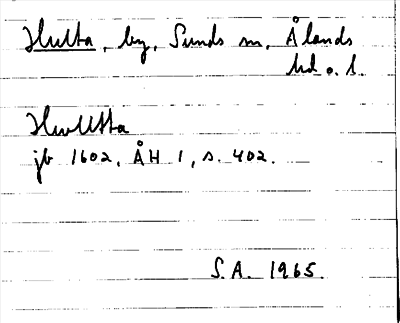 Hulta, by, Sunds sn, Ålands
hd o. l.
Hwltta
jb 1602, ÅH 1, s. 402.
S.A. 1965.